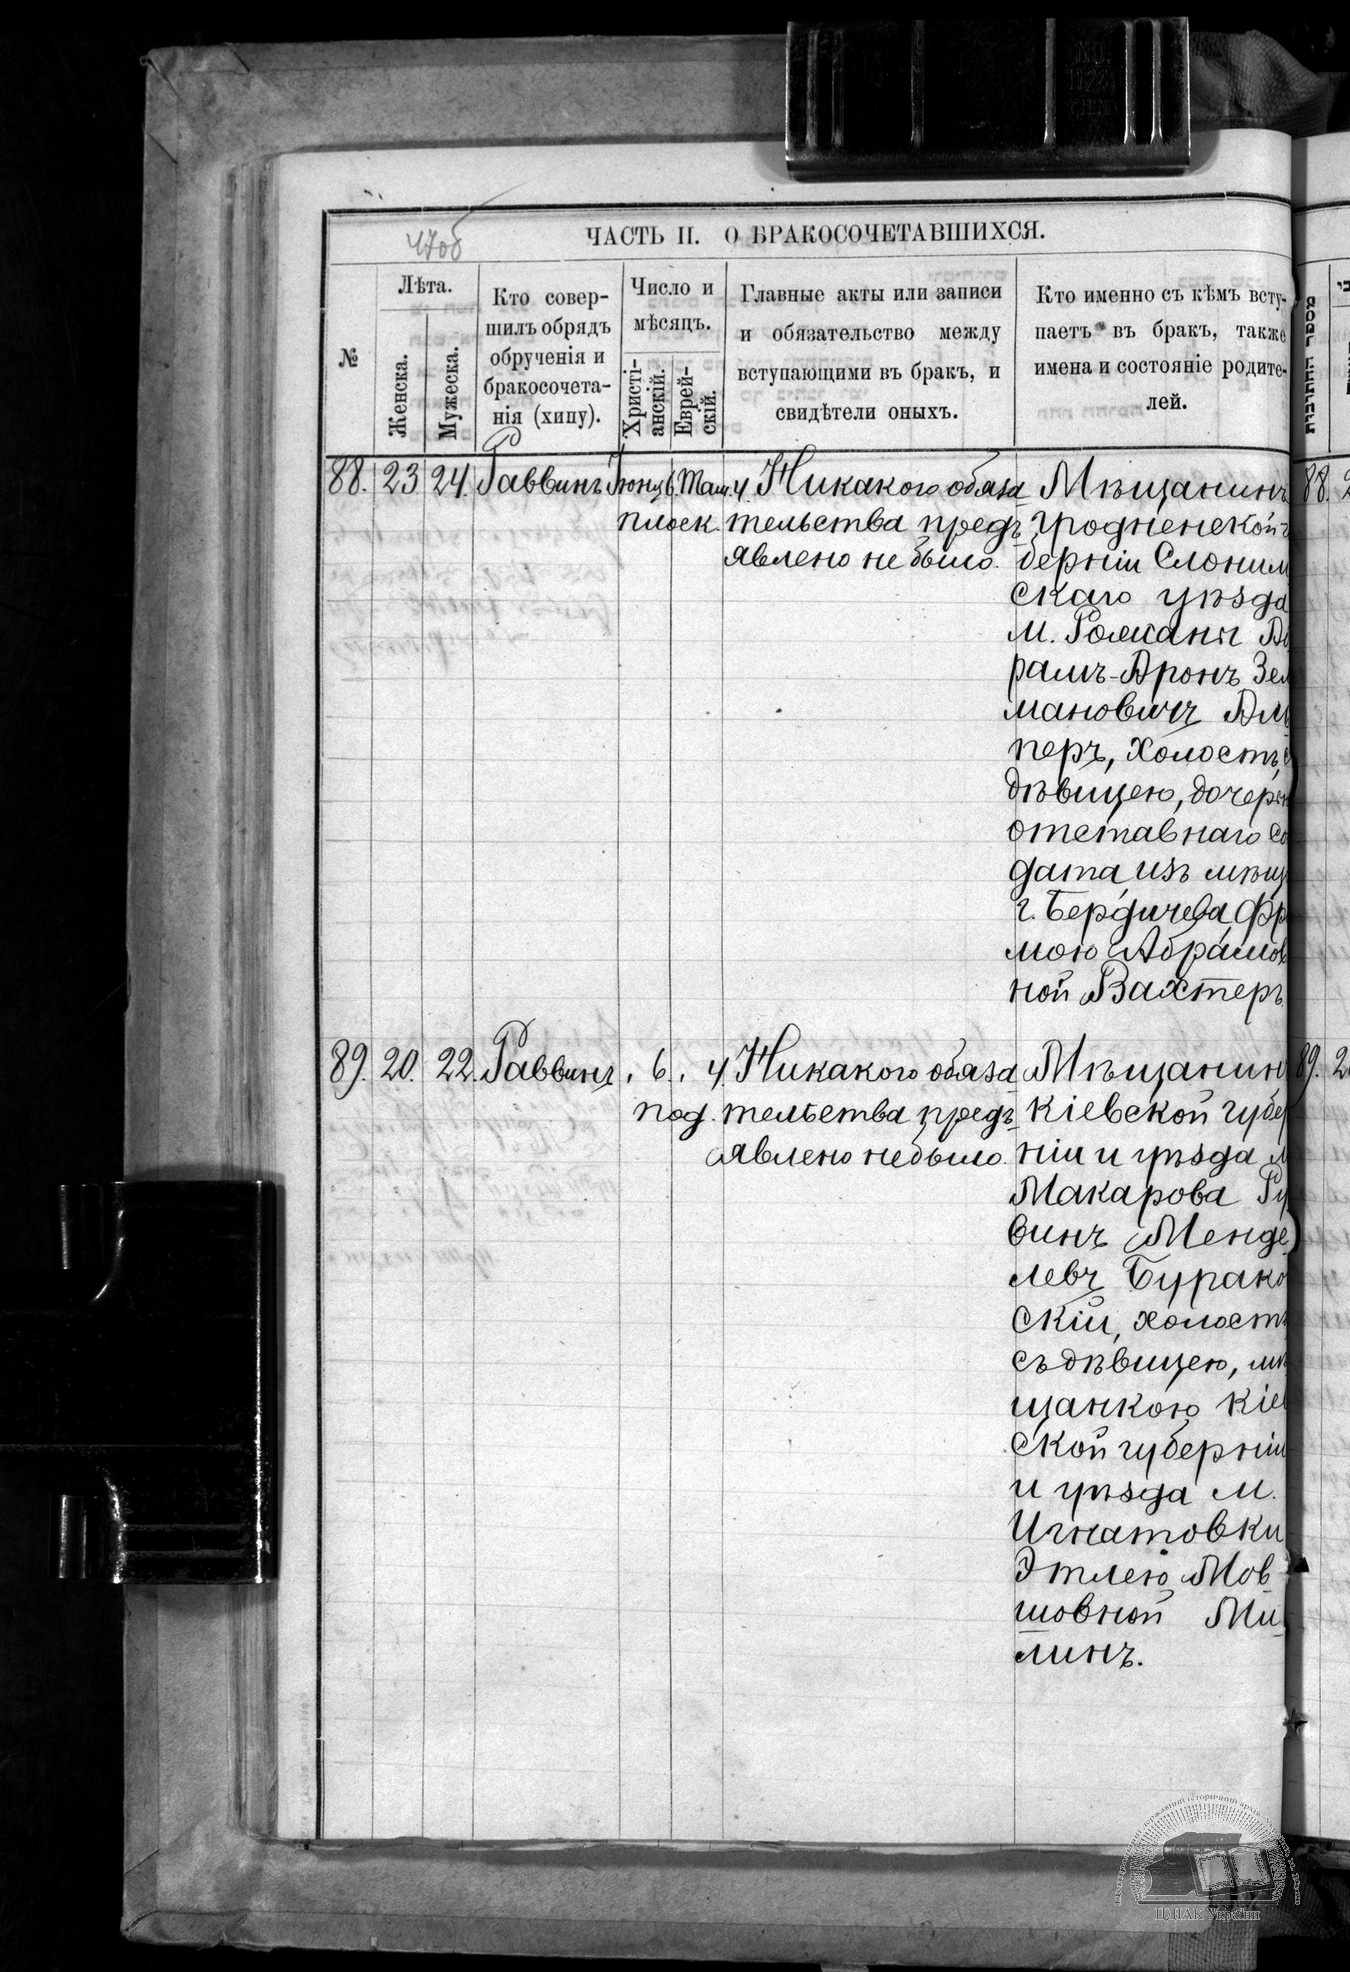 470б
ЧАСТЬ II. О БРАКОСОЧЕТАВШИХСЯ.
№
Лѣта.
Женска.
Мужеска.
Кто совер-
шилъ обрядъ
обрученія и
бракосочета-
нія (хипу).
Число и
мѣсяцъ.
Христі-
анскій.
Еврей-
скій.
Главные акты или записи
и обязательство между
вступающими въ бракъ, и
свидѣтели оныхъ.
Кто именно съ кѣмъ всту-
паетъ въ бракъ, также
имена и состояніе родите-
лей.
88. 23. 24. Раввинъ Іюня 6. Там. 4.
Никакого обяза
тельства предъ-
явлено не было.
Мѣщанинъ
Гродненской г
берніи Слоним
скаго уѣзда
м. Рожаны Аб
рамъ-Аронъ Зел
мановичъ Аль
перъ, холостъ, с
дѣвицею, дочерью
отставнаго со
дата, изъ мѣщ
г. Бердичева Фру
мою Абрамов
ной Вахтеръ
89. 20. 22. Раввинъ 6. 4
Никакого обяза
тельства предъ-
явлено не было.
Мѣщанин
Кіевской губер
ніи и уѣзда м
Макарова Ру
винъ Менде
левъ Бурако
скій, холостъ
съ дѣвицею, мѣ
щанкою Кіев
ской губерніи
и уѣзда м.
Игнатовки
Этлею Мов
шовной Ми-
линъ.
88. 2
89. 2
ЦДІАК України